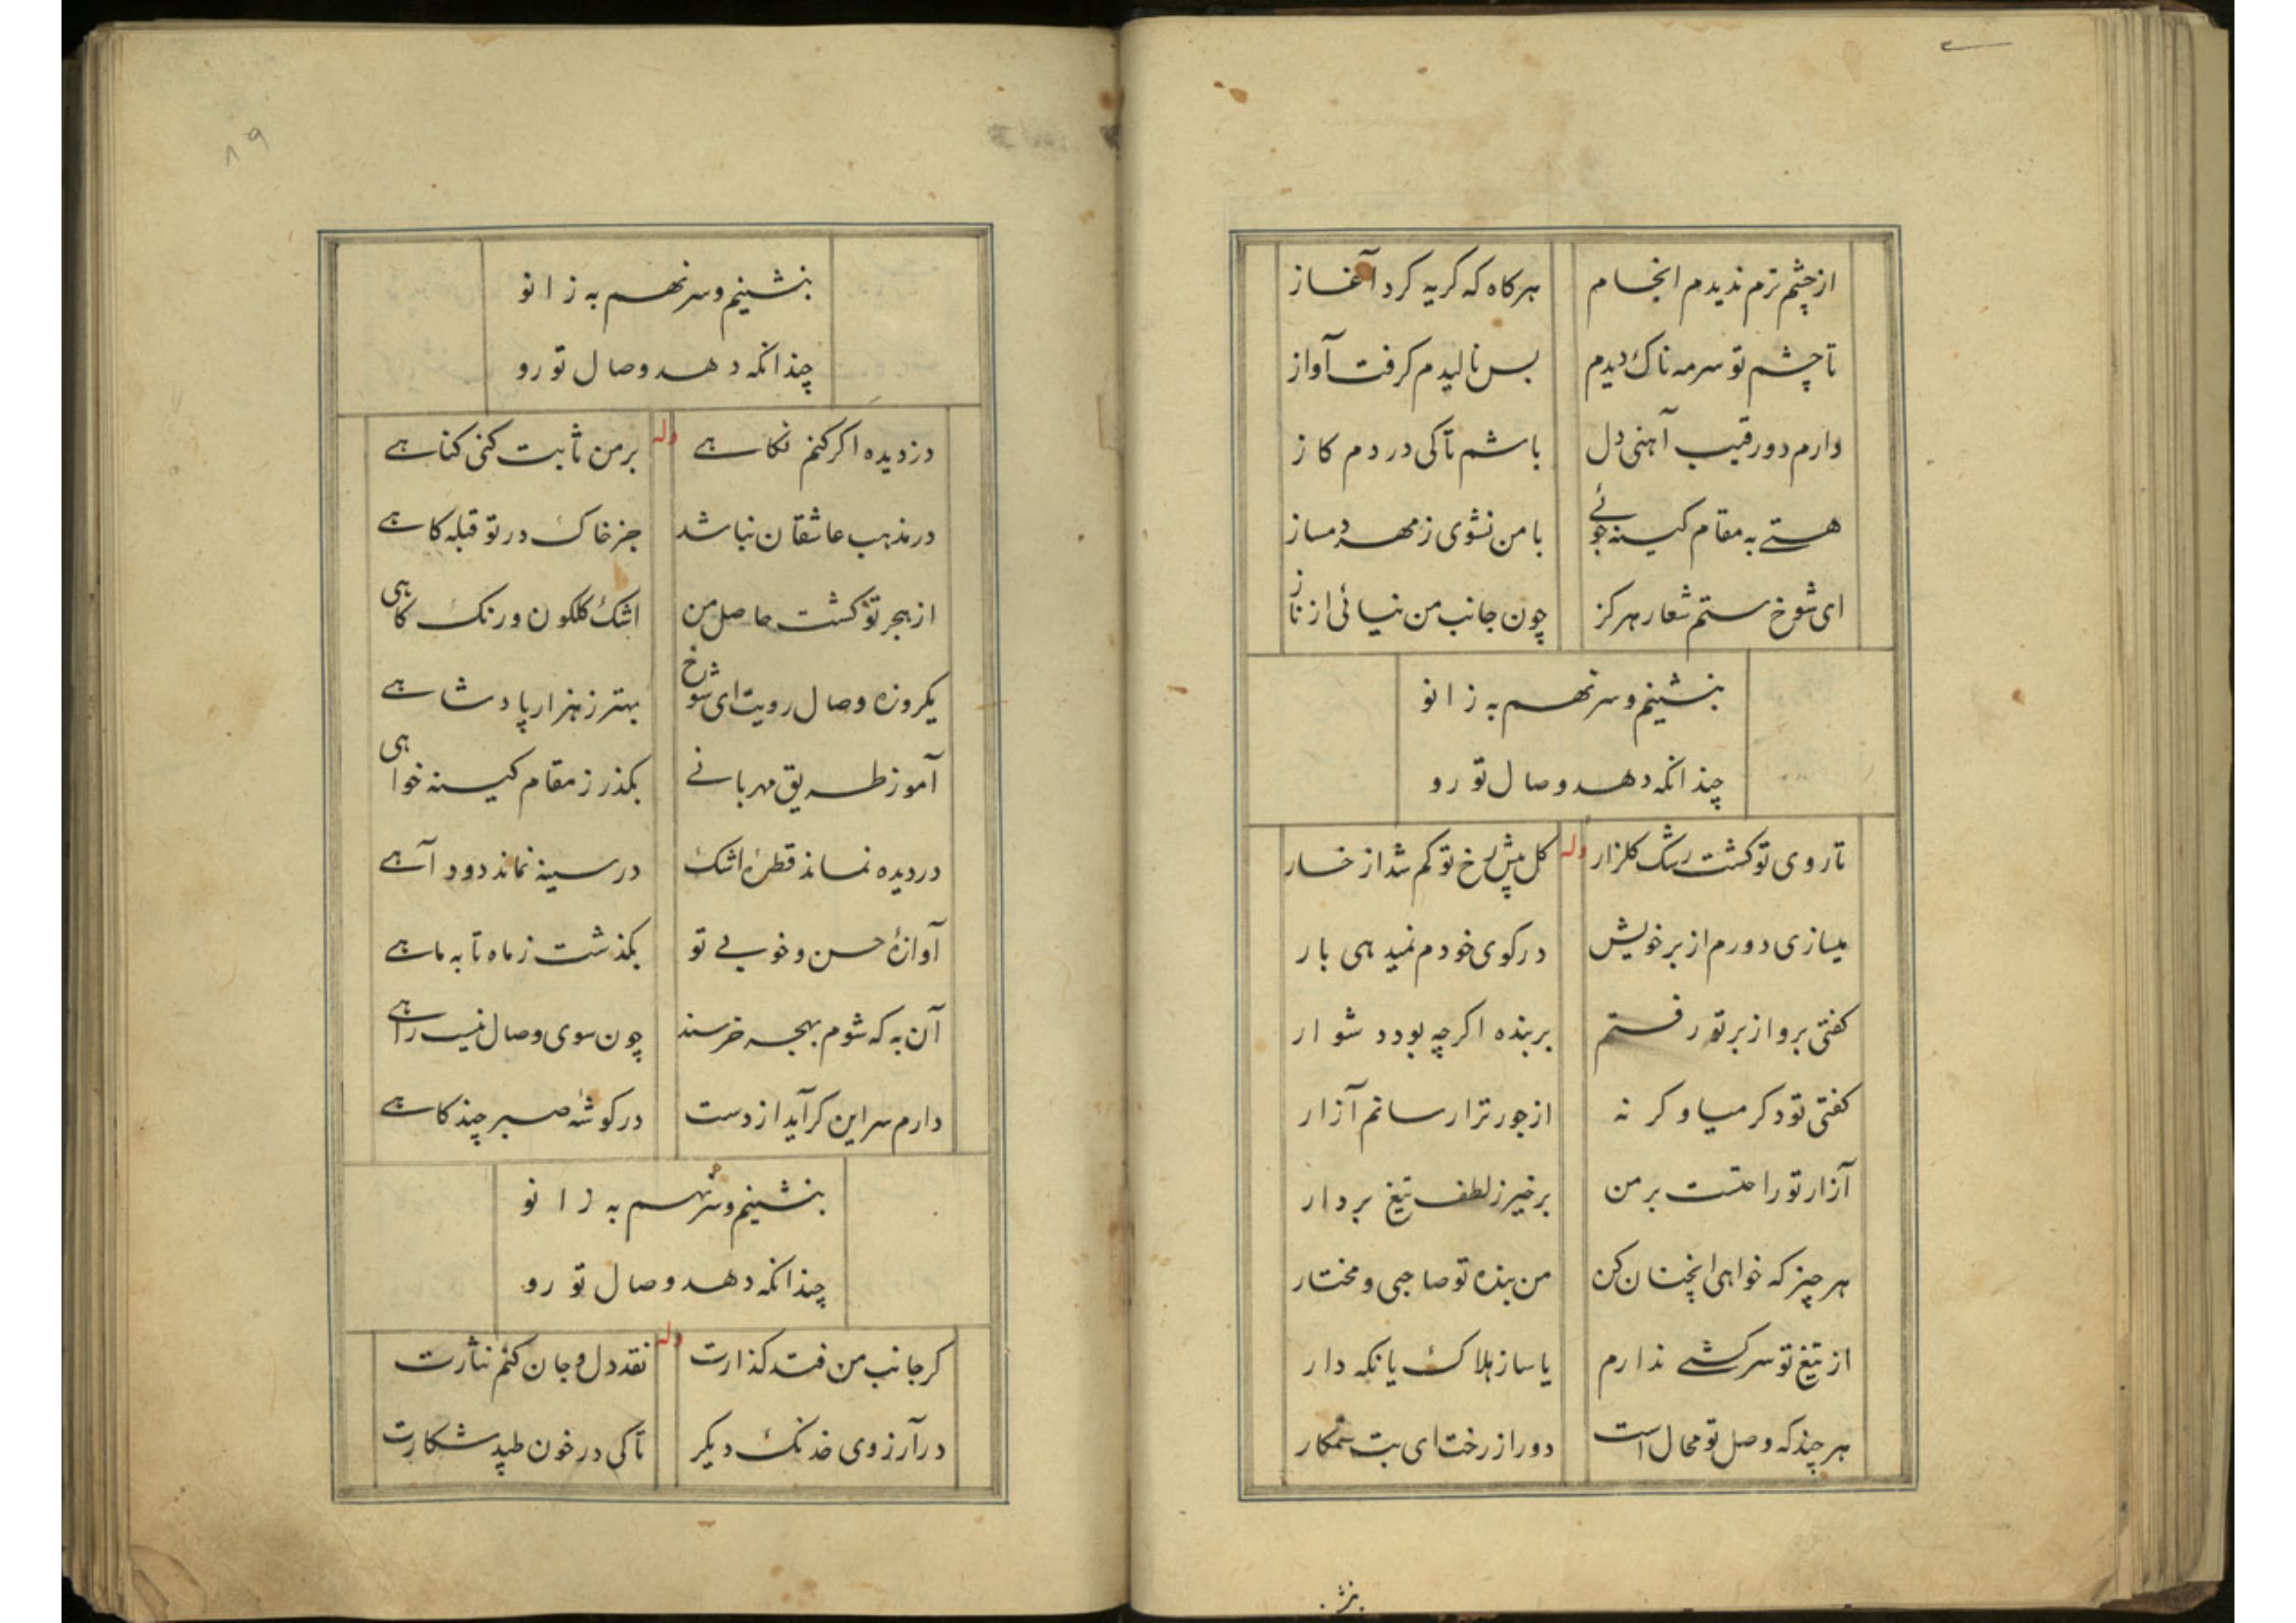 از چشم ترم ندیدم انجام هرکاه که کریه کرد آغاز
تا چشم تو سرمه ناک دیدم بس نالیدم کرفت آواز
دارم دو رقیب آهنی دل باشم تا کی در دم کاز
هستی به مقام کینه جوئی با من نشوی ز مهر دمساز
ای شوخ ستم شعار هرکز چون جانب من نیائی از ناز
بنشینم و سر نهم به زانو
چندانکه دهد وصال تو رو
تا روی تو کشت رشک کلزار وله کل پیش رخ تو کم شد از خار
میسازی دورم از بر خویش در کوی خودم نمیدهی بار
کفتی برو از بر تو رفتم بر بنده اکرچه بود دشوار
کفتی تو دکر میا و کر نه از جور ترا رسانم آزار
آزار تو راحتست بر من برخیز ز لطف تیغ بردار
هر چیز که خواهی انچنان کن من بنده تو صاحبی و مختار
از تیغ تو سرکشی ندارم یا ساز هلاک یا نکه دار
هرچند که وصل تو محال است دور از رخت ای بت ستمکار
بنشینم و سر نهم به زانو
چندانکه دهد وصال تو رو
دزدیده اکر کنم نکاهی وله بر من ثابت کنی کناهی
در مذهب عاشقان نباشد جز خاک در تو قبله کاهی
از هجر تو کشت حاصل من اشک کلکون و رنک کاهی
یکروزه وصال رویت ای شوخ بهتر ز هزار پادشاهی
آموز طریق مهربانی بکذر ز مقام کینه خواهی
در دیده نماند قطرهٔ اشک در سینه نماند دود آهی
آوازهٔ حسن و خوبی تو بکذشت ز ماه تا به ماهی
آن به که شوم بهجر خرسند چون سوی وصال نیست راهی
دارم سر این کر آید از دست در کوشهٔ صبر چند کاهی
بنشینم و سر نهم به زانو
چندانکه دهد وصال تو رو
کر جانب من فتد کذارت وله نقد دل و جان کنم نثارت
در آرزوی خدنک دیکر تا کی در خون طپد شکارت
۸۹